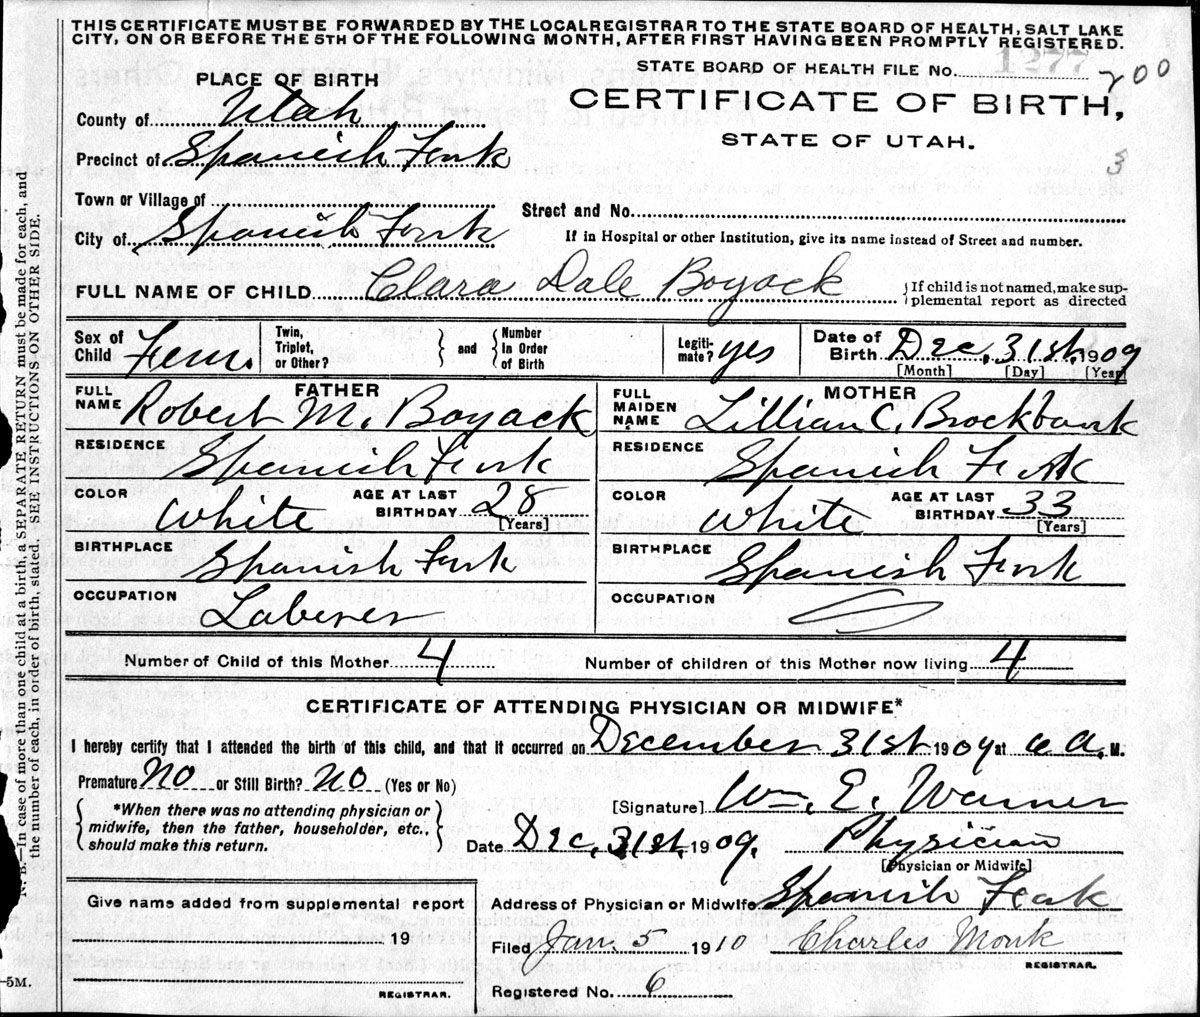 THIS CERTIFICATE MUST BE FORWARDED BY THE LOCALREGISTRAR TO THE STATE BOARD OF HEALTH, SALT LAKE
CITY, ON OR BEFORE THE 5TH OF THE FOLLOWING MONTH, AFTER FIRST HAVING BEEN PROMPTLY REGISTERED.
STATE BOARD OF HEALTH FILE No. 1277
200
PLACE OF BIRTH
CERTIFICATE OF BIRTH,
STATE OF UTAH.
3
County of Utah
Precinct of Spanish Fork
Town or Village of
Street and No.
City of Spanish Fork
If in Hospital or other Institution, give its name instead of Street and number.
FULL NAME OF CHILD Clara Dale Boyack
If child is not named, make sup-
plemental report as directed
Sex of Child Fem.
Twin, Triplet, or Other?
and
Number In Order of Birth
Legiti-
mate? yes
Date of Birth Dec. 31st. 1909
[Month] [Day] [Year]
FATHER
FULL NAME Robert M. Boyack
RESIDENCE Spanish Fork
COLOR White
AGE AT LAST BIRTHDAY 28
[Years]
BIRTHPLACE Spanish Fork
OCCUPATION Laberer
MOTHER
FULL MAIDEN NAME Lillian C. Brockbank
RESIDENCE Spanish Fork
COLOR White
AGE AT LAST BIRTHDAY 33
[Years]
BIRTHPLACE Spanish Fork
OCCUPATION
Number of Child of this Mother 4
Number of children of this Mother now living 4
CERTIFICATE OF ATTENDING PHYSICIAN OR MIDWIFE*
I hereby certify that I attended the birth of this child, and that it occurred on December 31st 1909 at A. M.
Premature No or Still Birth? No (Yes or No)
*When there was no attending physician or
midwife, then the father, householder, etc.,
should make this return.
[Signature] Wm. E. Warner
Date Dec. 31st. 1909. Physician
[Physician or Midwife]
Address of Physician or Midwife Spanish Fork
Give name added from supplemental report
19
REGISTRAR.
Filed Jan. 5 1910 Charles Monk
REGISTRAR.
Registered No. 6
N. B.—In case of more than one child at a birth, a SEPARATE RETURN must be made for each, and
the number of each, in order of birth, stated. SEE INSTRUCTIONS ON OTHER SIDE.
-5M.